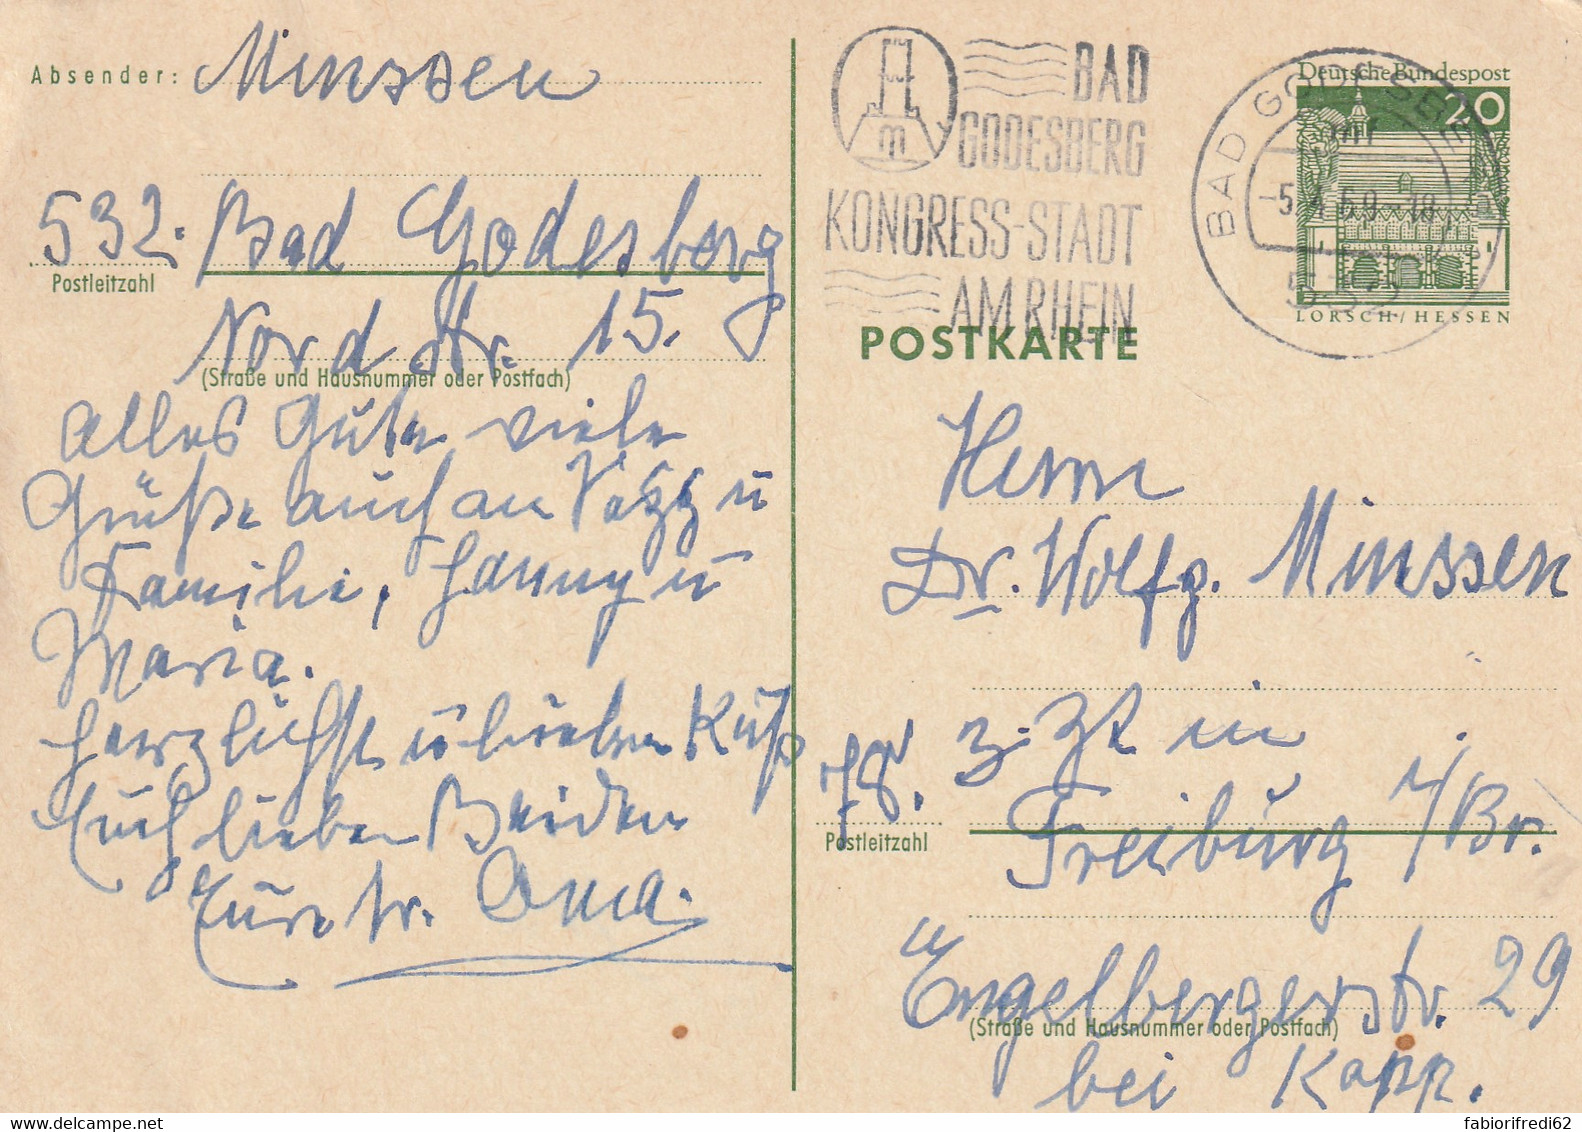 Absender: Minssen
532. Bad Godesberg
Postleitzahl
Nord str. 15.
(Straße und Hausnummer oder Postfach)
Alles Gute viele
Grüße auch an u
Familie, Hanny u
Maria.
Herzlichst u lieben Kuß
Euch lieben Beiden
Eure tr. Oma.
BAD
GODESBERG
KONGRESS-STADT
AM RHEIN
BAD GODESBERG
Deutsche Bundespost
20
LORSCH/HESSEN
POSTKARTE
Herrn
Dr. Wolfg. Minssen
78. z. Zt in
Postleitzahl
Freiburg i/Br.
Engelbergerstr. 29
(Straße und Hausnummer oder Postfach)
bei Kopp.
delcampe.net
fabiorifredi62